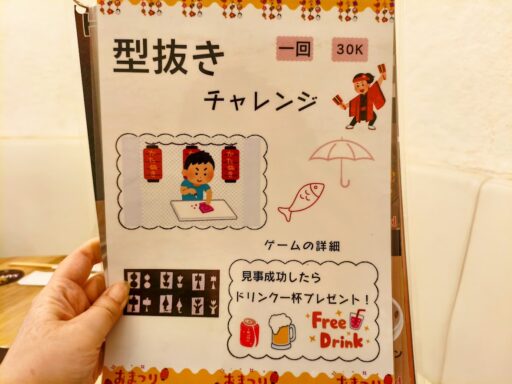 型抜き
一回 30K
チャレンジ
かたぬき
かたぬき
ゲームの詳細
見事成功したら
ドリンク一杯プレゼント!
Free
Drink
おまつり おまつり おまつり